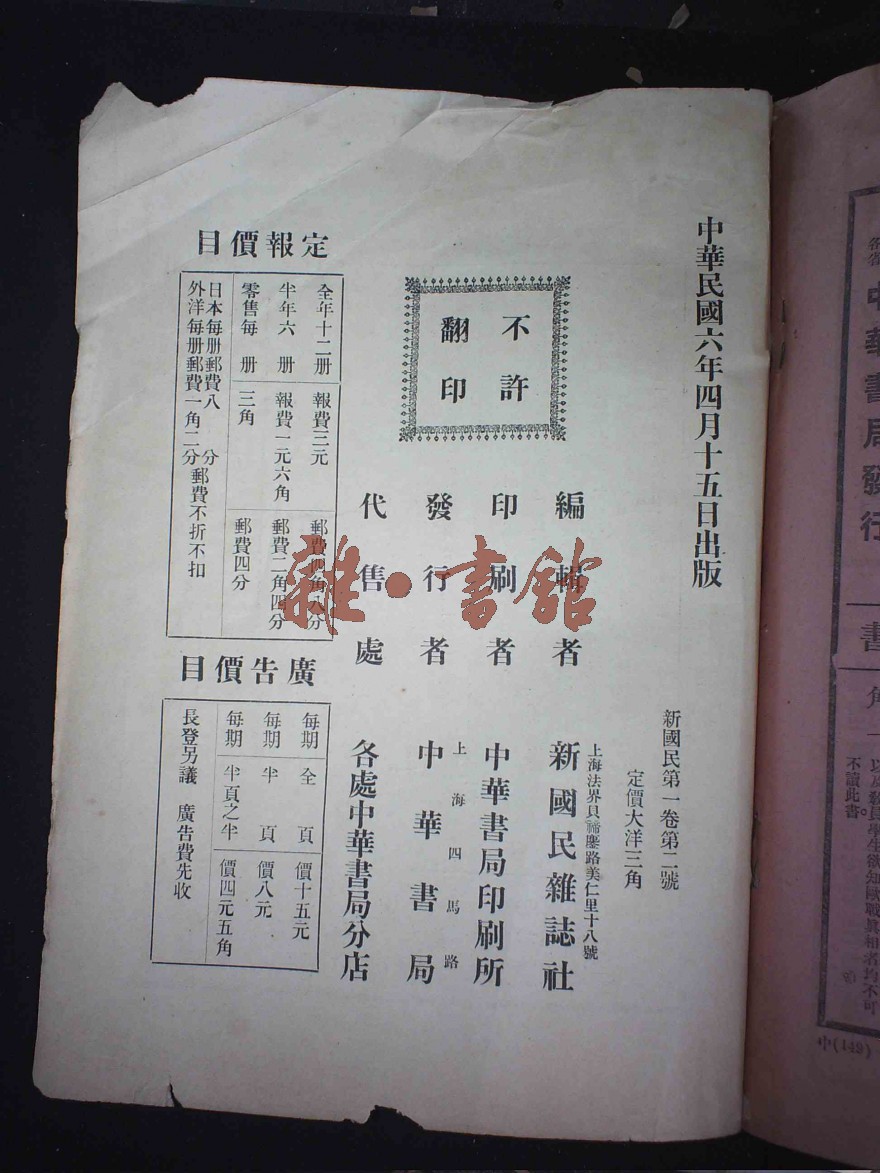 中華民國六年四月十五日出版
新國民第一卷第二號
定價大洋三角
不許
翻印
編輯者
上海法界貝禘鏖路美仁里十八號
新國民雜誌社
印刷者
中華書局印刷所
發行者
上海四馬路
中華書局
代售處
各處中華書局分店
定報價目
全年十二册 報費三元 郵費四角八分
半年六册 報費一元六角 郵費二角四分
零售每册 三角 郵費四分
日本每册郵費八分
外洋每册郵費一角二分
郵費不折不扣
廣告價目
每期全頁 價十五元
每期半頁 價八元
每期半頁之半 價四元五角
長登另議 廣告費先收
雜·書館
中華書局發行
書
角
以及教員學生欲知歐戰眞相者均不可
不讀此書。
中(149)